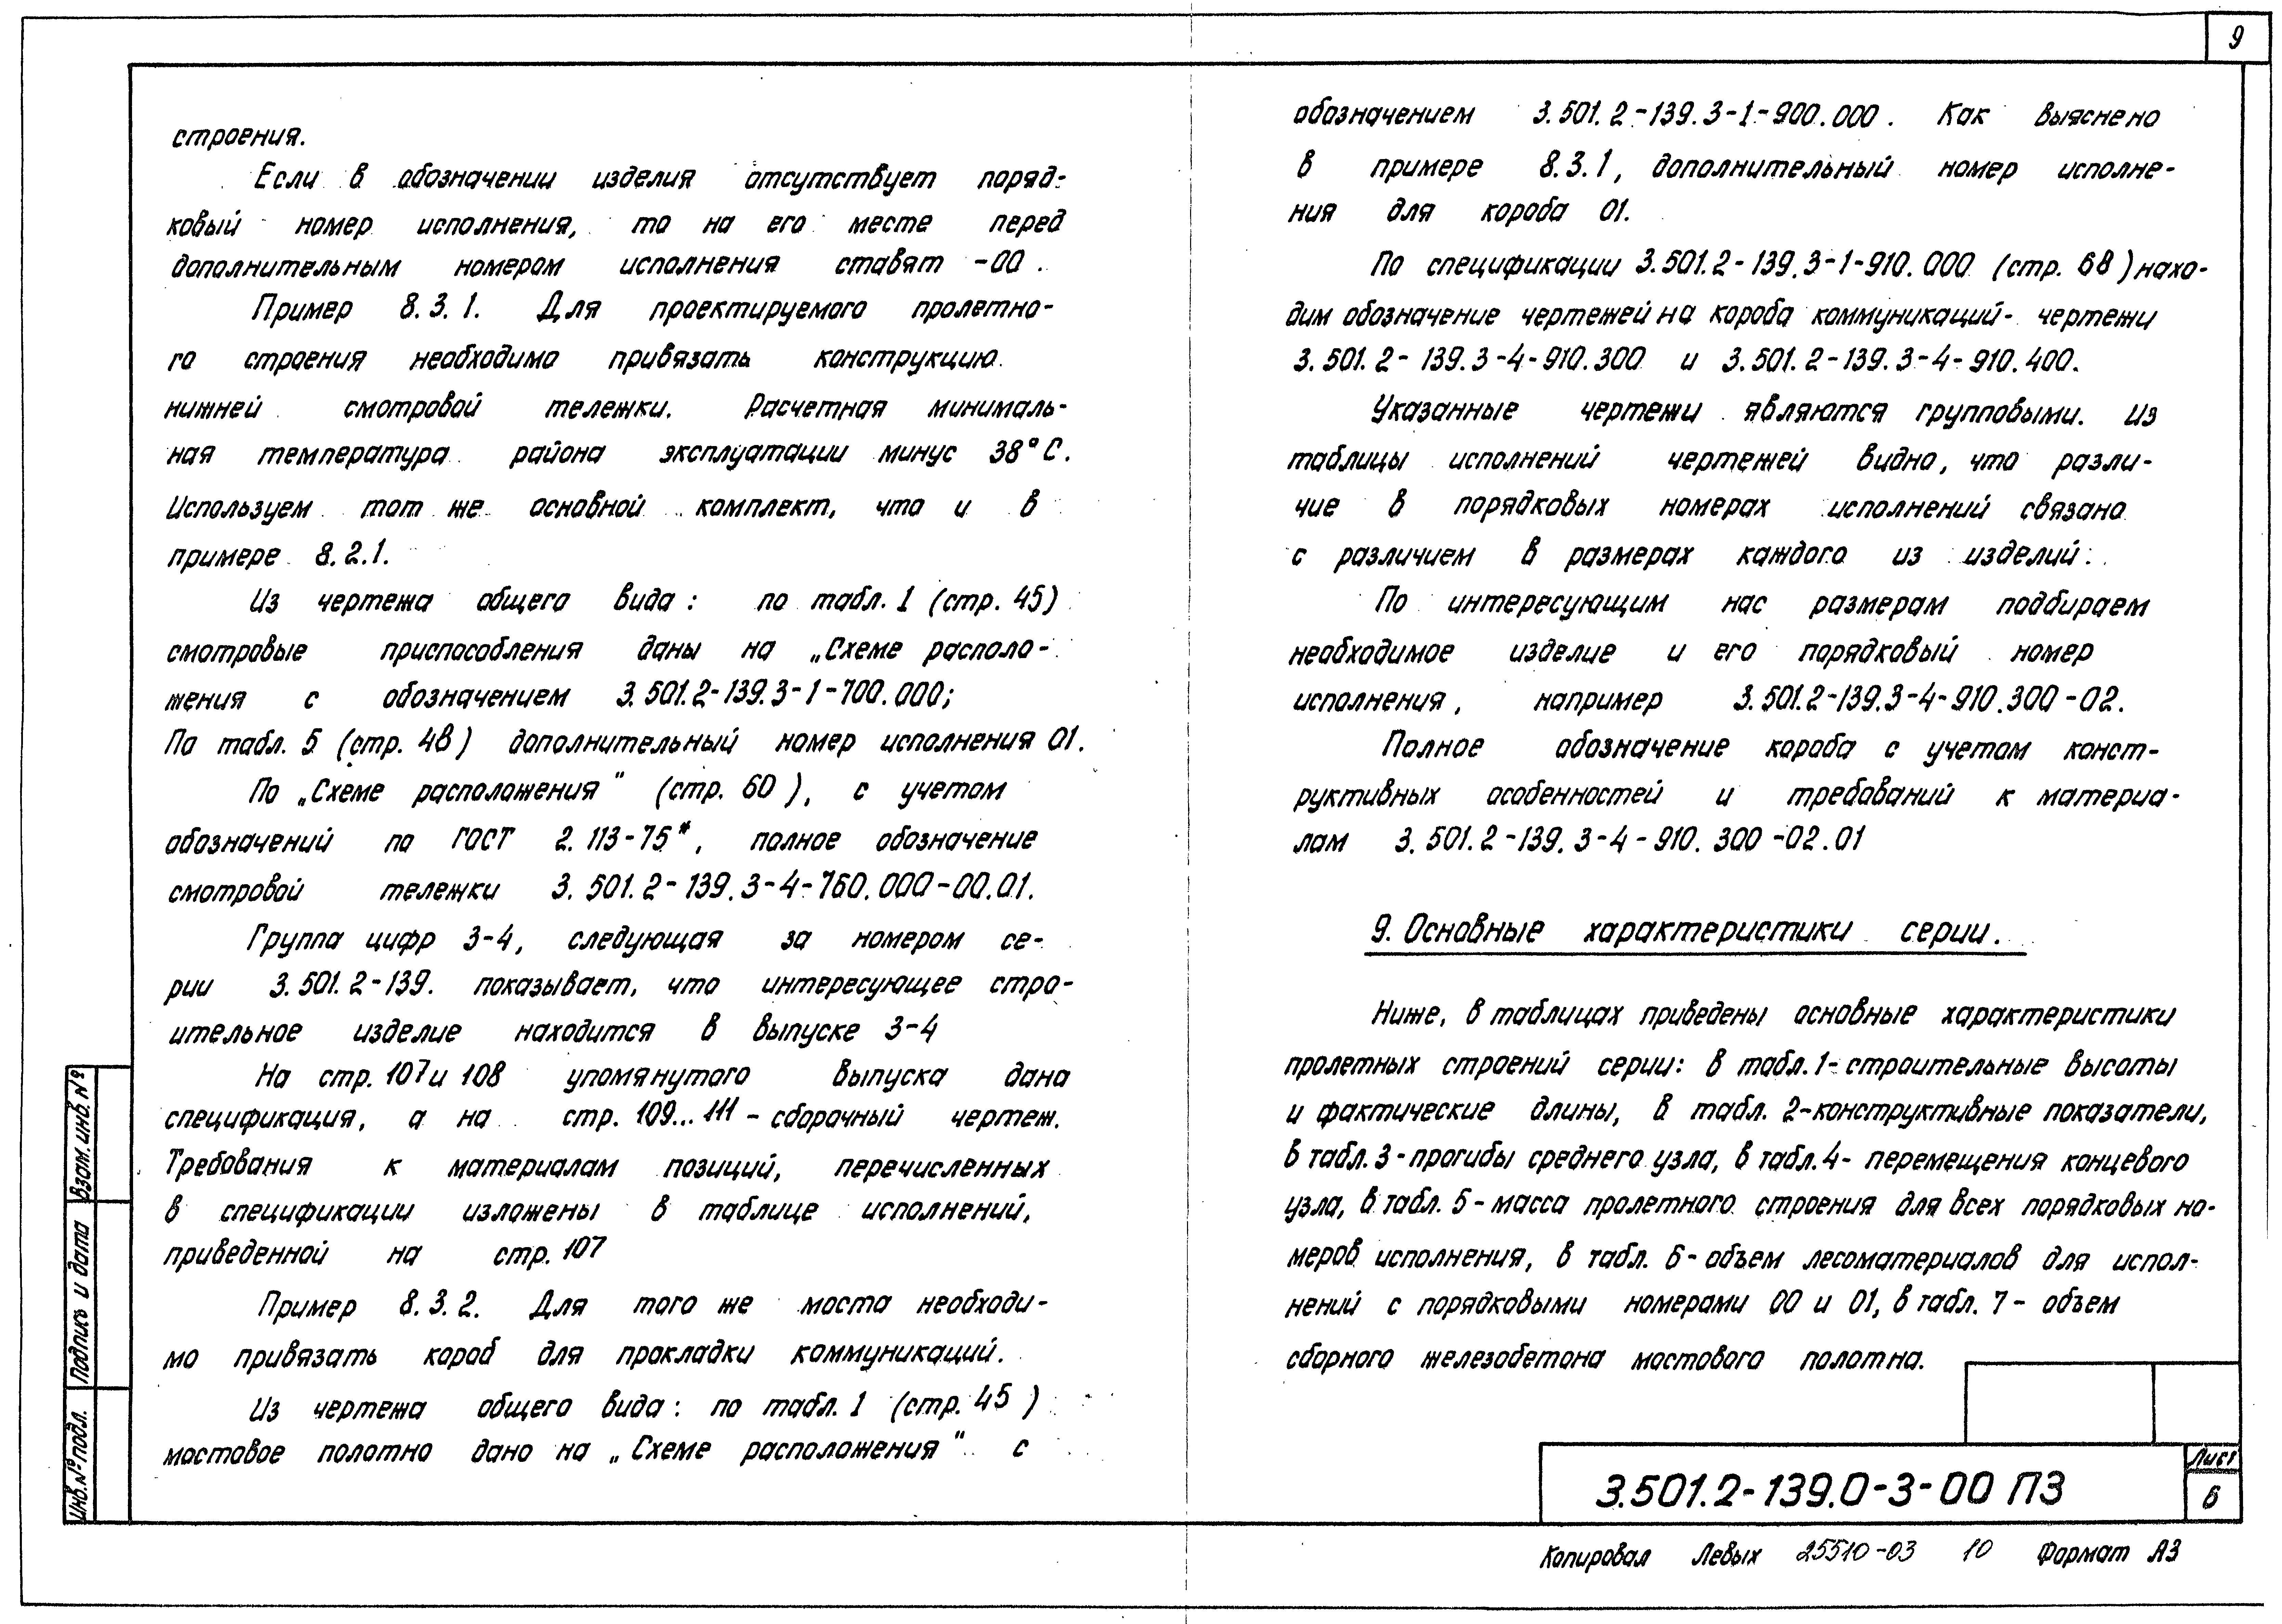 9
строения.
Если в обозначении изделия отсутствует поряд-
ковый номер исполнения, то на его месте перед
дополнительным номером исполнения ставят -00.
Пример 8.3.1. Для проектируемого пролетно-
го строения необходимо привязать конструкцию
нижней смотровой тележки. Расчетная минималь-
ная температура района эксплуатации минус 38°С.
Используем тот же основной комплект, что и в
примере 8.2.1.
Из чертежа общего вида: по табл. 1 (стр. 45)
смотровые приспособления даны на „Схеме располо-
жения с обозначением 3.501.2-139.3-1-700.000;
По табл. 5 (стр. 48) дополнительный номер исполнения 01.
По „Схеме расположения" (стр. 60), с учетом
обозначений по ГОСТ 2.113-75*, полное обозначение
смотровой тележки 3.501.2-139.3-4-760.000-00.01.
Группа цифр 3-4, следующая за номером се-
рии 3.501.2-139. показывает, что интересующее стро-
ительное изделие находится в выпуске 3-4
На стр. 107 и 108 упомянутого выпуска дана
спецификация, а на стр. 109...111 - сборочный чертеж.
Требования к материалам позиций, перечисленных
в спецификации изложены в таблице исполнений,
приведенной на стр. 107
Пример 8.3.2. Для того же моста необходи-
мо привязать короб для прокладки коммуникаций.
Из чертежа общего вида: по табл. 1 (стр. 45)
мостовое полотно дано на „Схеме расположения" с
обозначением 3.501.2-139.3-1-900.000. Как выяснено
в примере 8.3.1, дополнительный номер исполне-
ния для короба 01.
По спецификации 3.501.2-139.3-1-910.000 (стр. 68) нахо-
дим обозначение чертежей на короба коммуникаций - чертежи
3.501.2-139.3-4-910.300 и 3.501.2-139.3-4-910.400.
Указанные чертежи являются групповыми. Из
таблицы исполнений чертежей видно, что разли-
чие в порядковых номерах исполнений связано
с различием в размерах каждого из изделий.
По интересующим нас размерам подбираем
необходимое изделие и его порядковый номер
исполнения, например 3.501.2-139.3-4-910.300-02.
Полное обозначение короба с учетом конст-
руктивных особенностей и требований к материа-
лам 3.501.2-139.3-4-910.300-02.01
9. Основные характеристики серии.
Ниже, в таблицах приведены основные характеристики
пролетных строений серии: в табл. 1- строительные высоты
и фактические длины, в табл. 2-конструктивные показатели,
в табл. 3 - прогибы среднего узла, в табл. 4 - перемещения концевого
узла, в табл. 5 - масса пролетного строения для всех порядковых но-
меров исполнения, в табл. 6 - объем лесоматериалов для испол-
нений с порядковыми номерами 00 и 01, в табл. 7 - объем
сборного железобетона мостового полотна.
Взам. инв. №
Подпись и дата
Инв. № подл.
3.501.2-139.0-3-00 ПЗ
Лист
6
Копировал Левых 25510-03 10 Формат А3